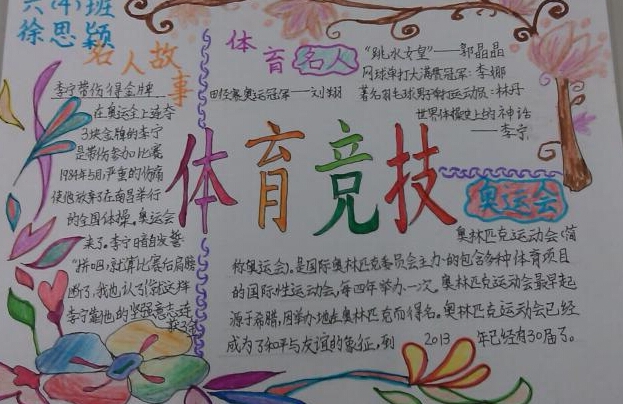 六(4)班
徐思颖
名人故事
李宁带伤得金牌
在奥运会上连夺
3块金牌的李宁
是带伤参加比赛
1984年5月,严重的伤痛
使他放弃了在南昌举行
的全国体操。奥运会
来了。李宁暗自发誓
"拼吧,就算比赛后肩膀
断了,我也认了你就这样
李宁靠他的坚强意志连
获3金
体育名人
田径赛奥运冠军——刘翔
"跳水女皇"——郭晶晶
网球单打大满贯冠军:李娜
著名羽毛球男子单打运动员:林丹
世界体操史上的神话
——李宁
体育竞技
奥运会
奥林匹克运动会(简
称奥运会)。是国际奥林匹克委员会主力的包含各种体育项目
的国际性运动会,每四年举办一次。奥林匹克运动会最早起
源于希腊,因举办地在奥林匹克而得名。奥林匹克运动会已经
成为了和平与友谊的象征,到 2013 年已经有30届了。